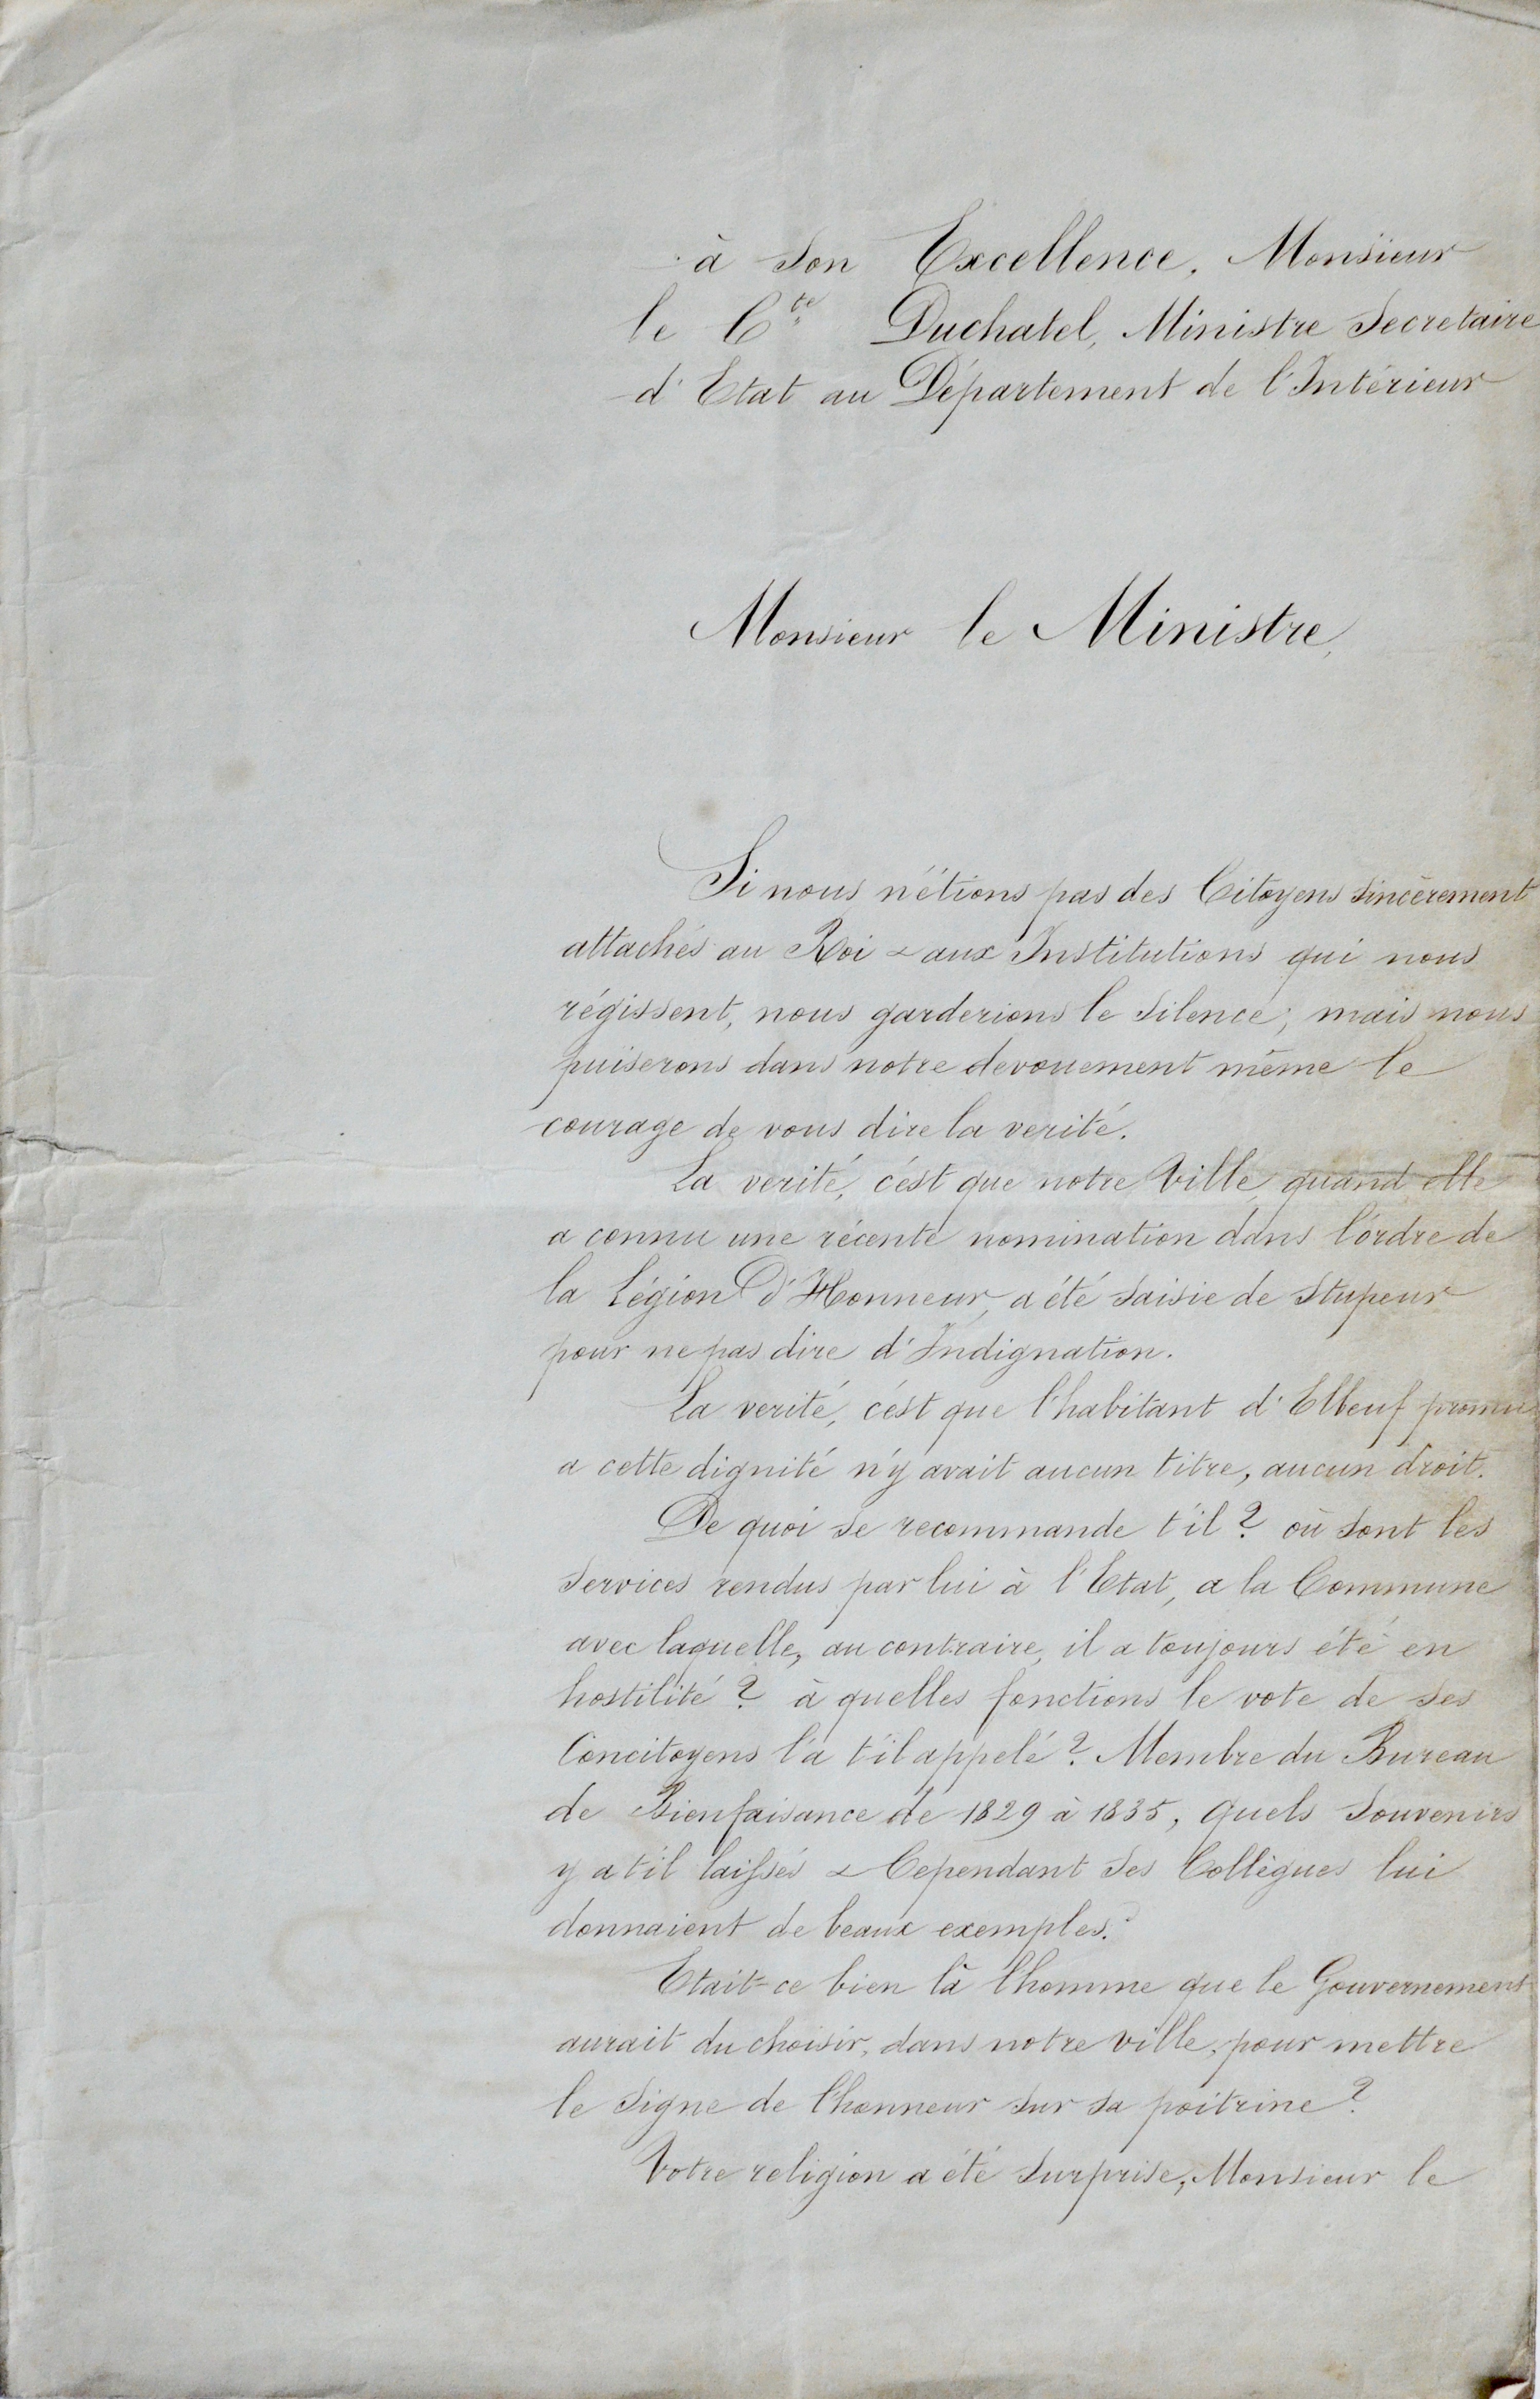 à Son Excellence, Monsieur
le Cte Duchatel, Ministre Secretaire
d'Etat au Département de l'Intérieur
Monsieur le Ministre,
Si nous n'étions pas des Citoyens sincèrement
attachés au Roi & aux Institutions qui nous
régissent, nous garderions le silence; mais nous
puiserons dans notre devouement même le
courage de vous dire la verité.
La verité, c'est que notre Ville, quand elle
a connu une récente nomination dans l'ordre de
la Légion D'Honneur, a été saisie de stupeur
pour ne pas dire d'Indignation.
La verité, c'est que l'habitant d'Elbeuf promu
a cette dignité n'y avait aucun titre, aucun droit.
De quoi se recommande t'il? où sont les
services rendus par lui à l'Etat, a la Commune
avec laquelle, au contraire, il a toujours été en
hostilité? à quelles fonctions le vote de ses
Concitoyens l'a t'il appelé? Membre du Bureau
de Bienfaisance de 1829 à 1835, quels souvenirs
y a t'il laissés & Cependant ses Collègues lui
donnaient de beaux exemples?
Etait-ce bien là l'homme que le Gouvernement
aurait du choisir, dans notre ville, pour mettre
le signe de l'honneur sur sa poitrine?
Votre religion a été surprise, Monsieur le